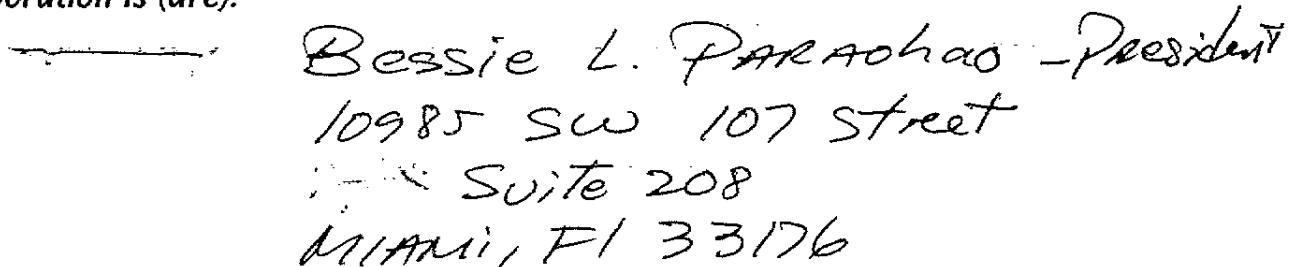 oration is (are):
Bessie L. PARAOhao - President
10985 SW 107 Street
Suite 208
MIAMi, Fl 33176